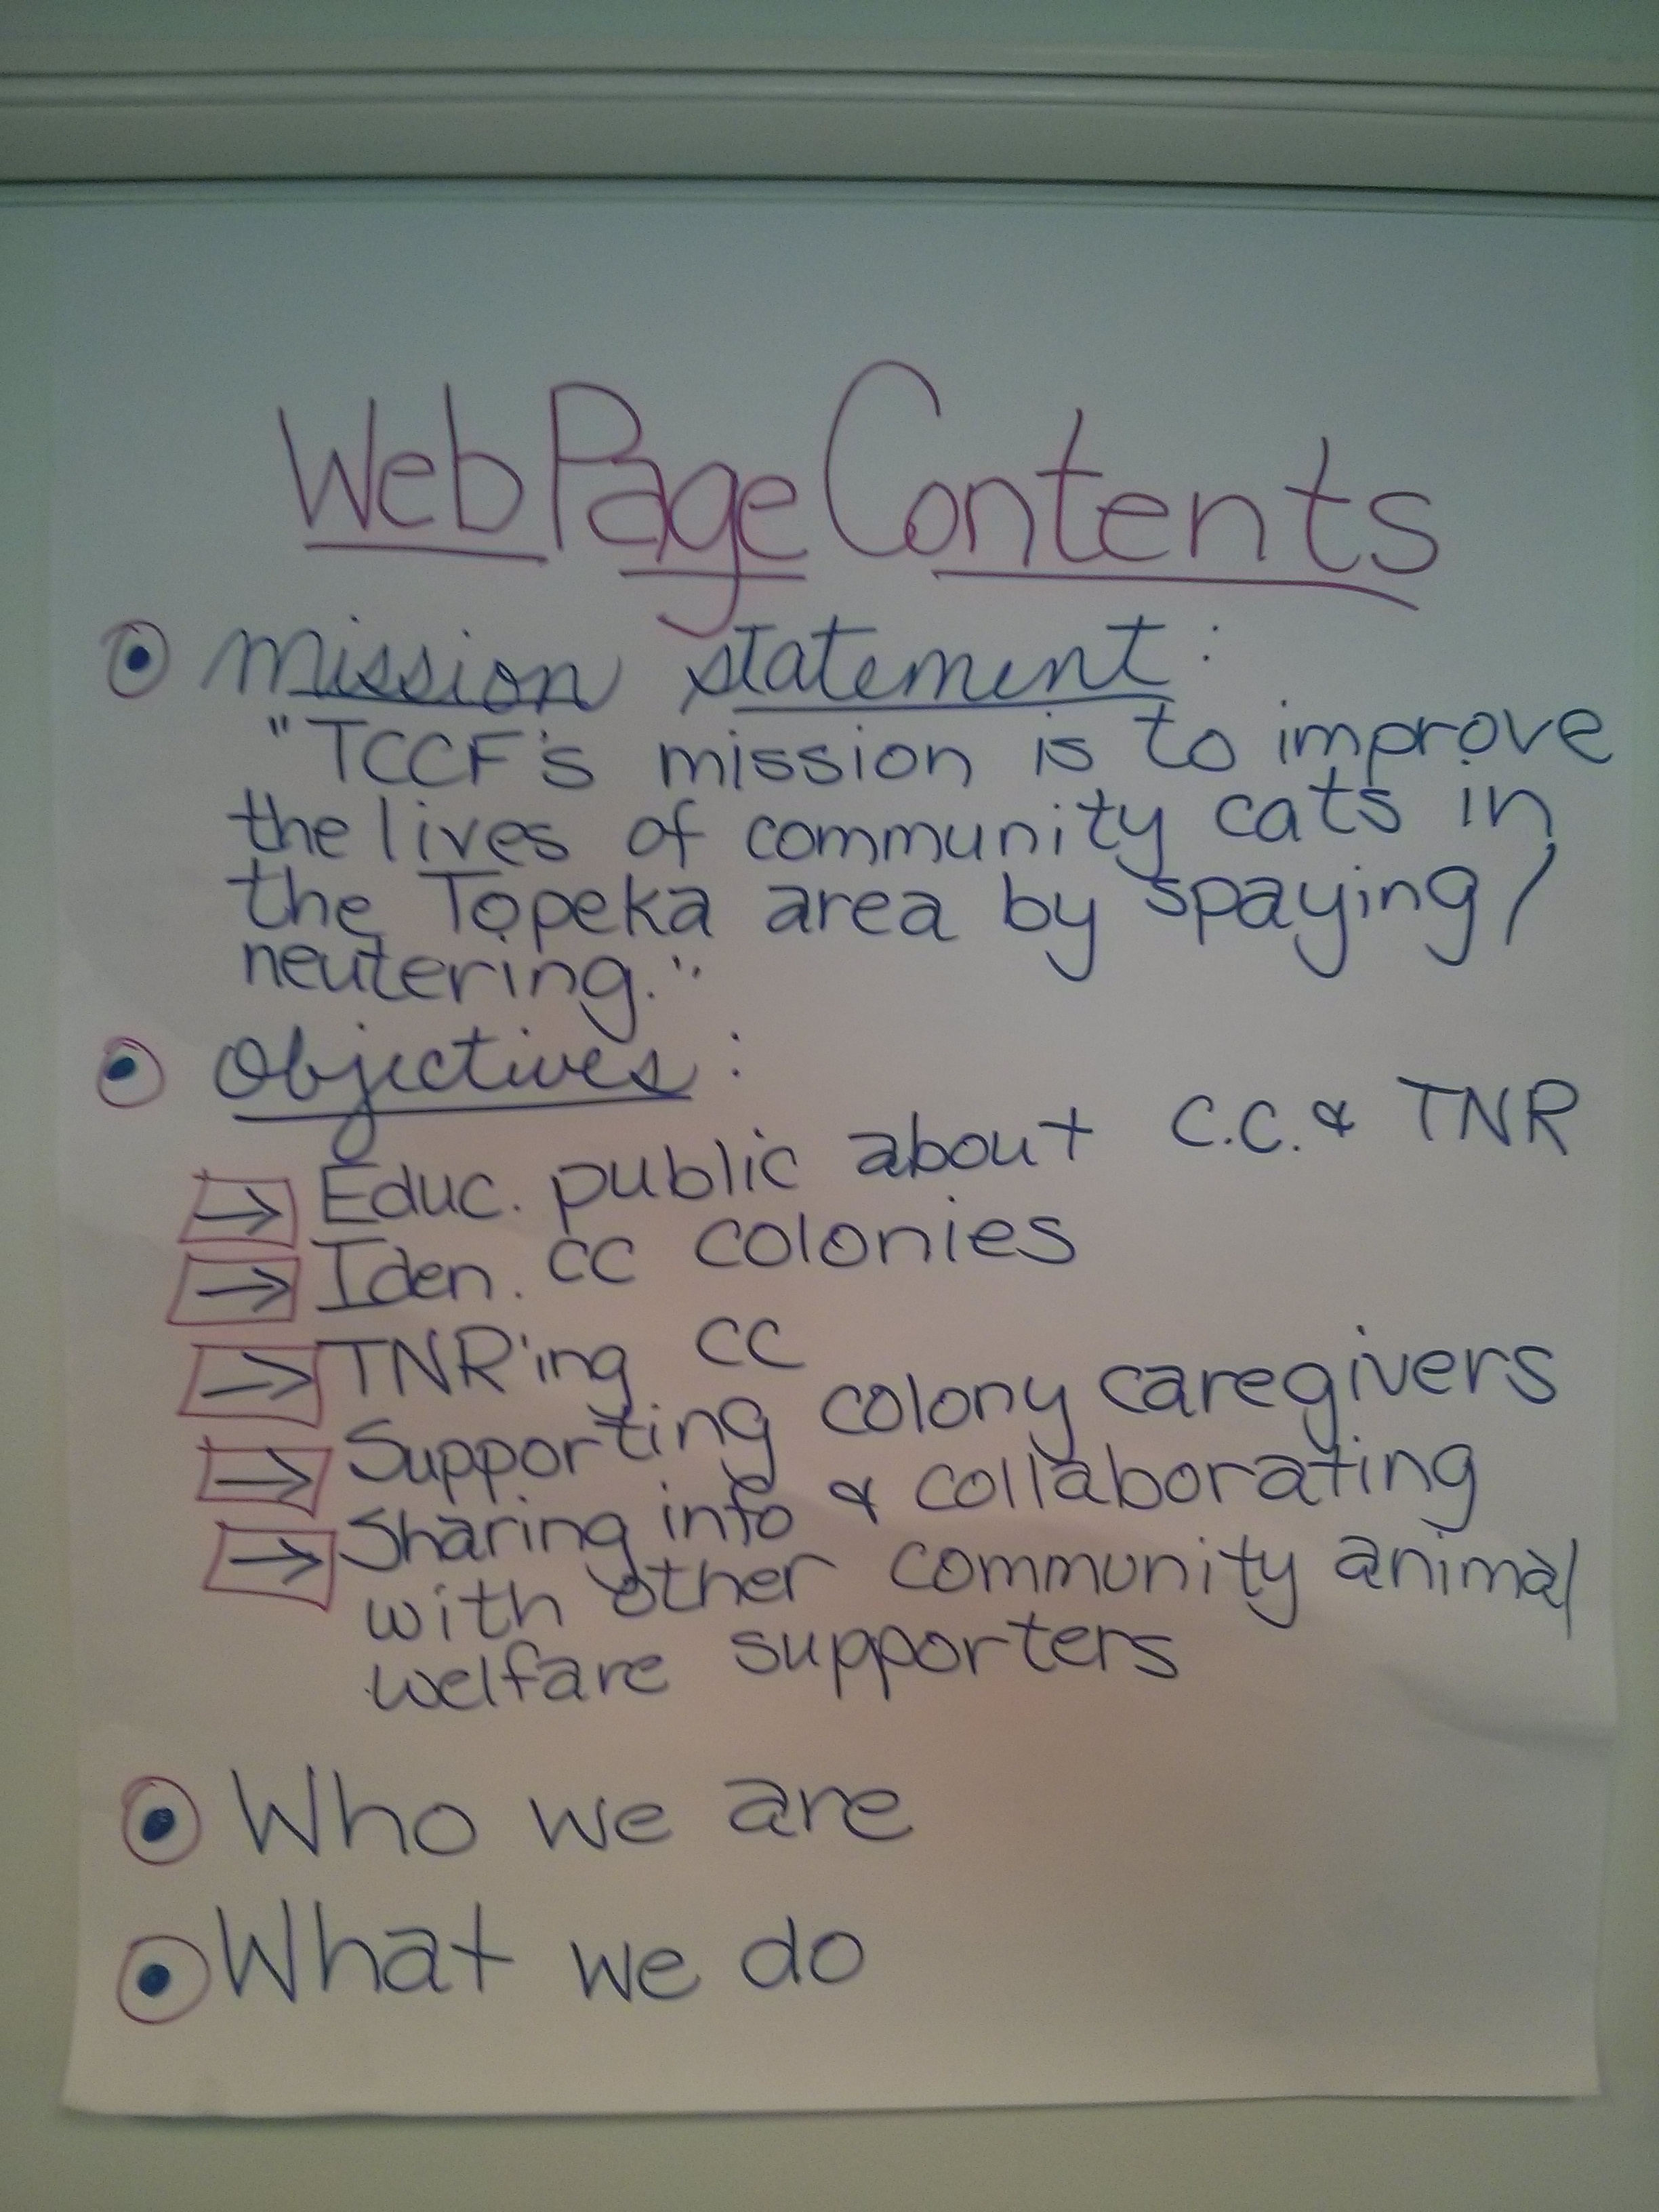 Web Page Contents
• Mission statement:
"TCCF's mission is to improve
the lives of community cats in
the Topeka area by spaying/
neutering."
• Objectives:
→ Educ. public about C.C. & TNR
→ Iden. CC colonies
→ TNR'ing CC
→ Supporting colony caregivers
→ Sharing info & collaborating
with other community animal
welfare supporters
• Who we are
• What we do